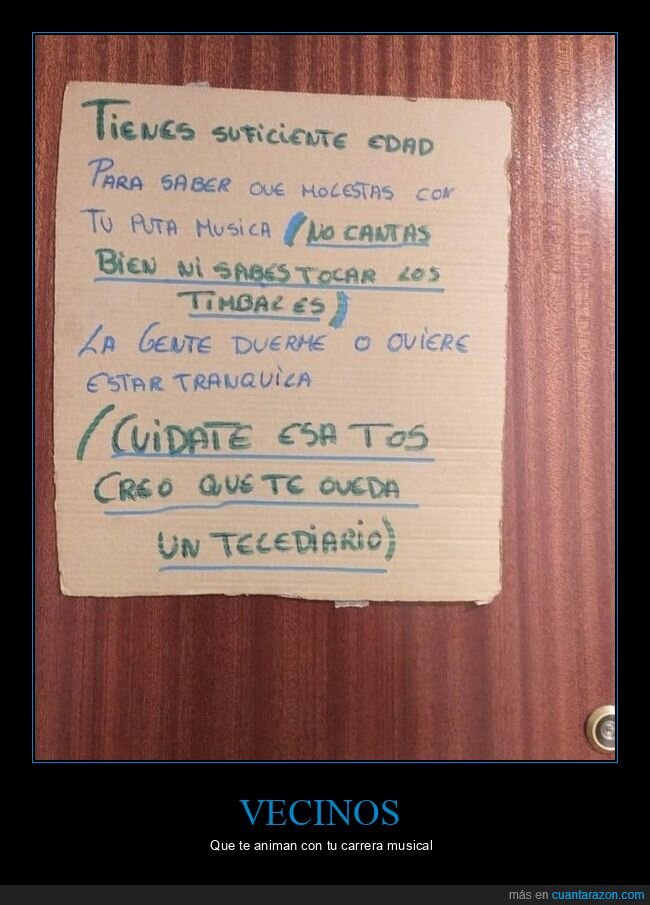 TIENES SUFICIENTE EDAD
PARA SABER QUE MOLESTAS CON
TU PUTA MUSICA (NO CANTAS
BIEN NI SABES TOCAR LOS
TIMBALES)
LA GENTE DUERME O QUIERE
ESTAR TRANQUILA
(CUIDATE ESA TOS
CREO QUE TE QUEDA
UN TELEDIARIO)
VECINOS
Que te animan con tu carrera musical
más en cuantarazon.com